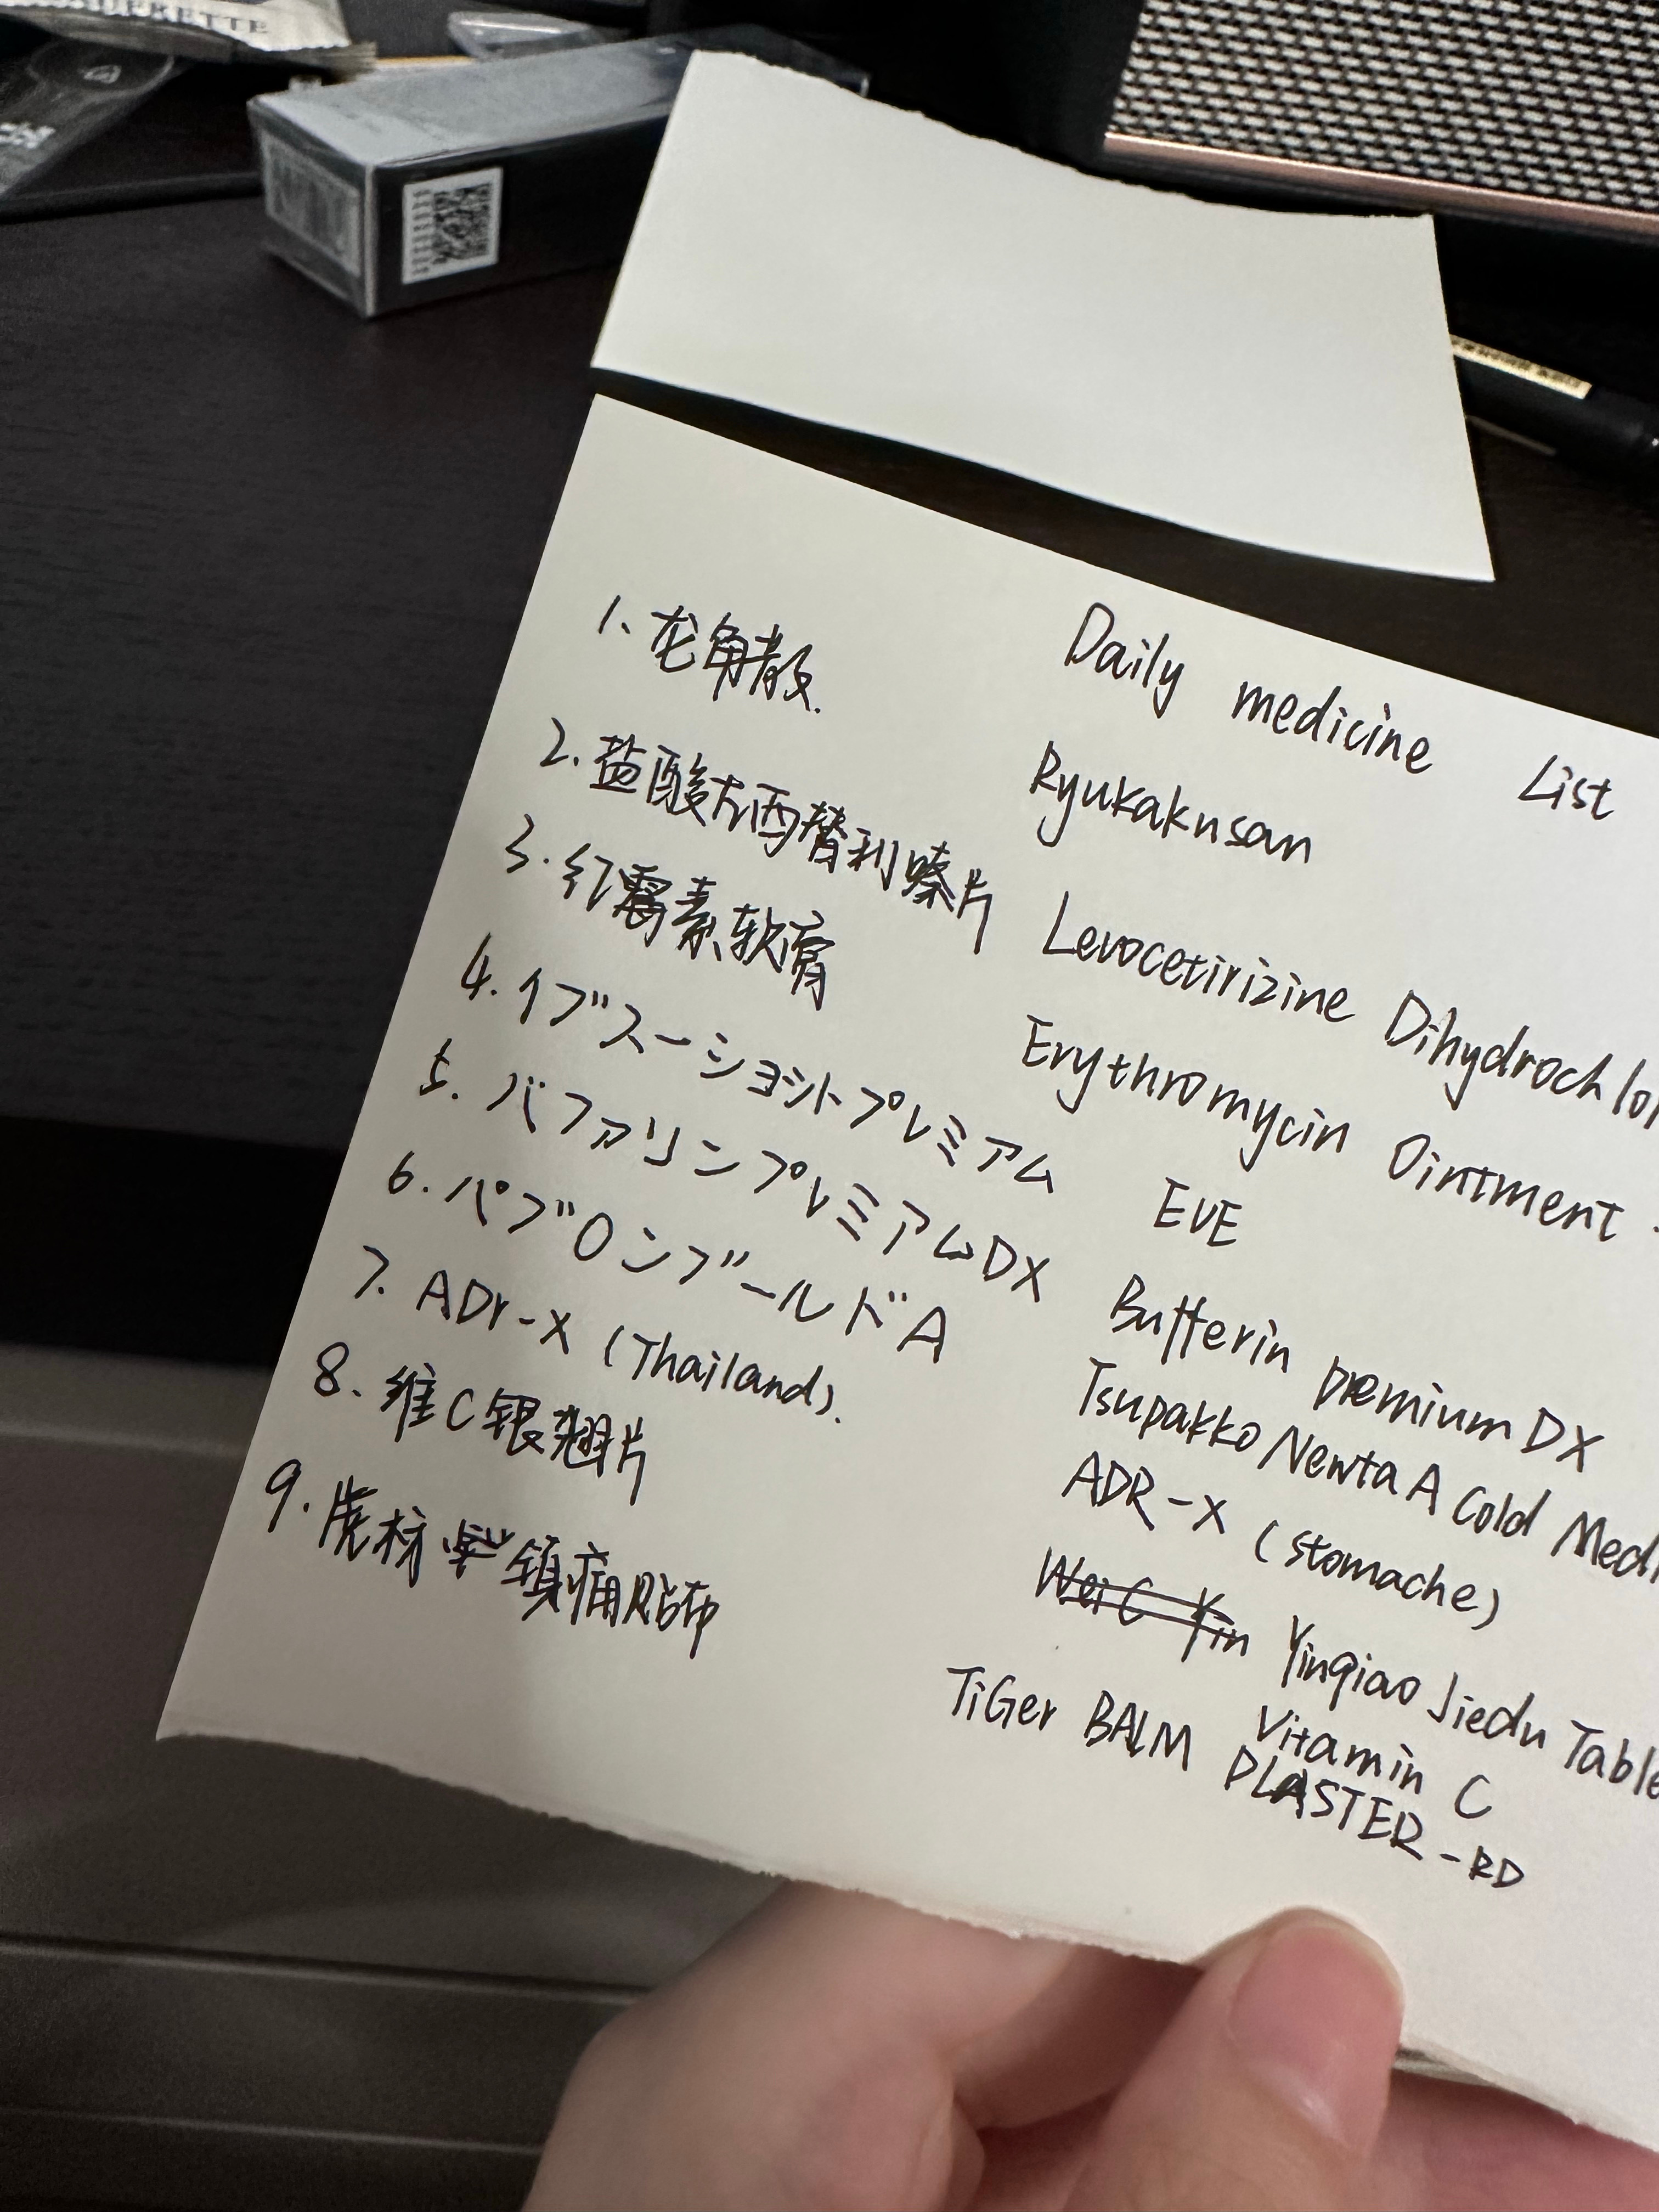 ERETTE
Daily medicine List
1、龙角散. Ryukakusan
2.盐酸左西替利嗪片 Levocetirizine Dihydrochlor
3.红霉素软膏 Erythromycin Ointment
4.イブスーショットプレミアム EVE
5.バファリンプレミアムDX Bufferin premium DX
6.パブロンブールドA Tsupakko Newta A Cold Medi
7.ADr-X (Thailand). ADR-X (stomache)
8.维C银翘片 Wei C Yin Yinqiao Jiedu Table
Vitamin C
9.虎标镇痛贴布 TiGer BALM PLASTER-RD